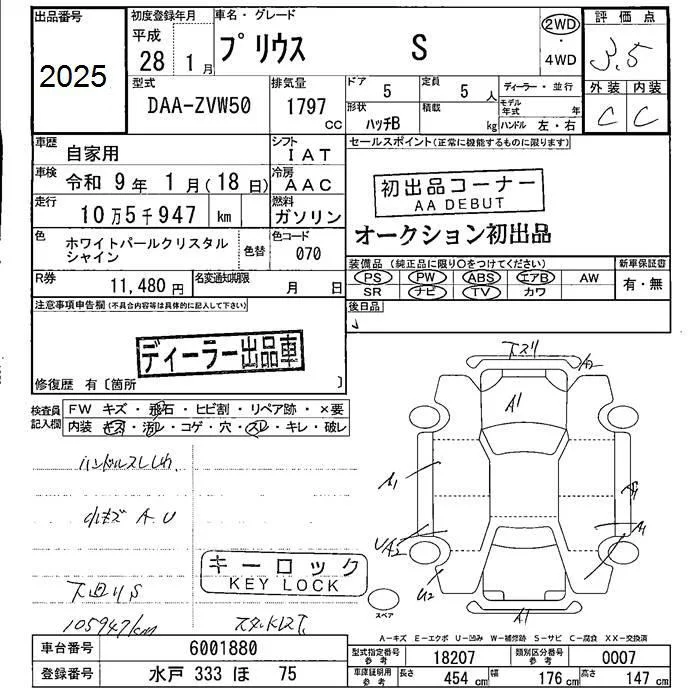 出品番号
2025
初度登録年月
平成
28年 1月
車名・グレード
プリウス S
2WD
・
4WD
評価点
3.5
外装 内装
C C
型式
DAA-ZVW50
排気量
1797
CC
ドア
5
定員
5人
形状
ハッチB
積載
kg
ディーラー・並行
モデル年式 年
ハンドル 左・右
車歴
自家用
シフト
IAT
車検
令和 9年 1月(18日)
冷房
AAC
走行
10万5千947 km
燃料
ガソリン
色
ホワイトパールクリスタル
シャイン
色替
色コード
070
R券
11,480円
名変通知期限
月 日
セールスポイント(正常に機能するものに限ります)
初出品コーナー
AA DEBUT
オークション初出品
装備品(純正品に限り○をつけてください)
PS PW ABS エアB AW
SR ナビ TV カワ
新車保証書
有・無
後日品
注意事項申告欄(不具合内容等は具体的に記入して下さい)
ディーラー出品車
修復歴 有〔箇所 〕
検査員
記入欄
FW キズ・飛石・ヒビ割・リペア跡・×要
内装 キズ・汚レ・コゲ・穴・スレ・キレ・破レ
ハンドルスレ
小キズ A.U
下廻りS
105947km
キーロック
KEY LOCK
下スリ
A2
A1
A1
A1
UA2
U2
A1
スペア
A-キズ E-エクボ U-凹み W-補修跡 S-サビ C-腐食 XX-交換済
車台番号
6001880
登録番号
水戸 333 ほ 75
型式指定番号
参考
18207
類別区分番号
参考
0007
車庫証明用
参考
長さ
454cm
幅
176cm
高さ
147cm